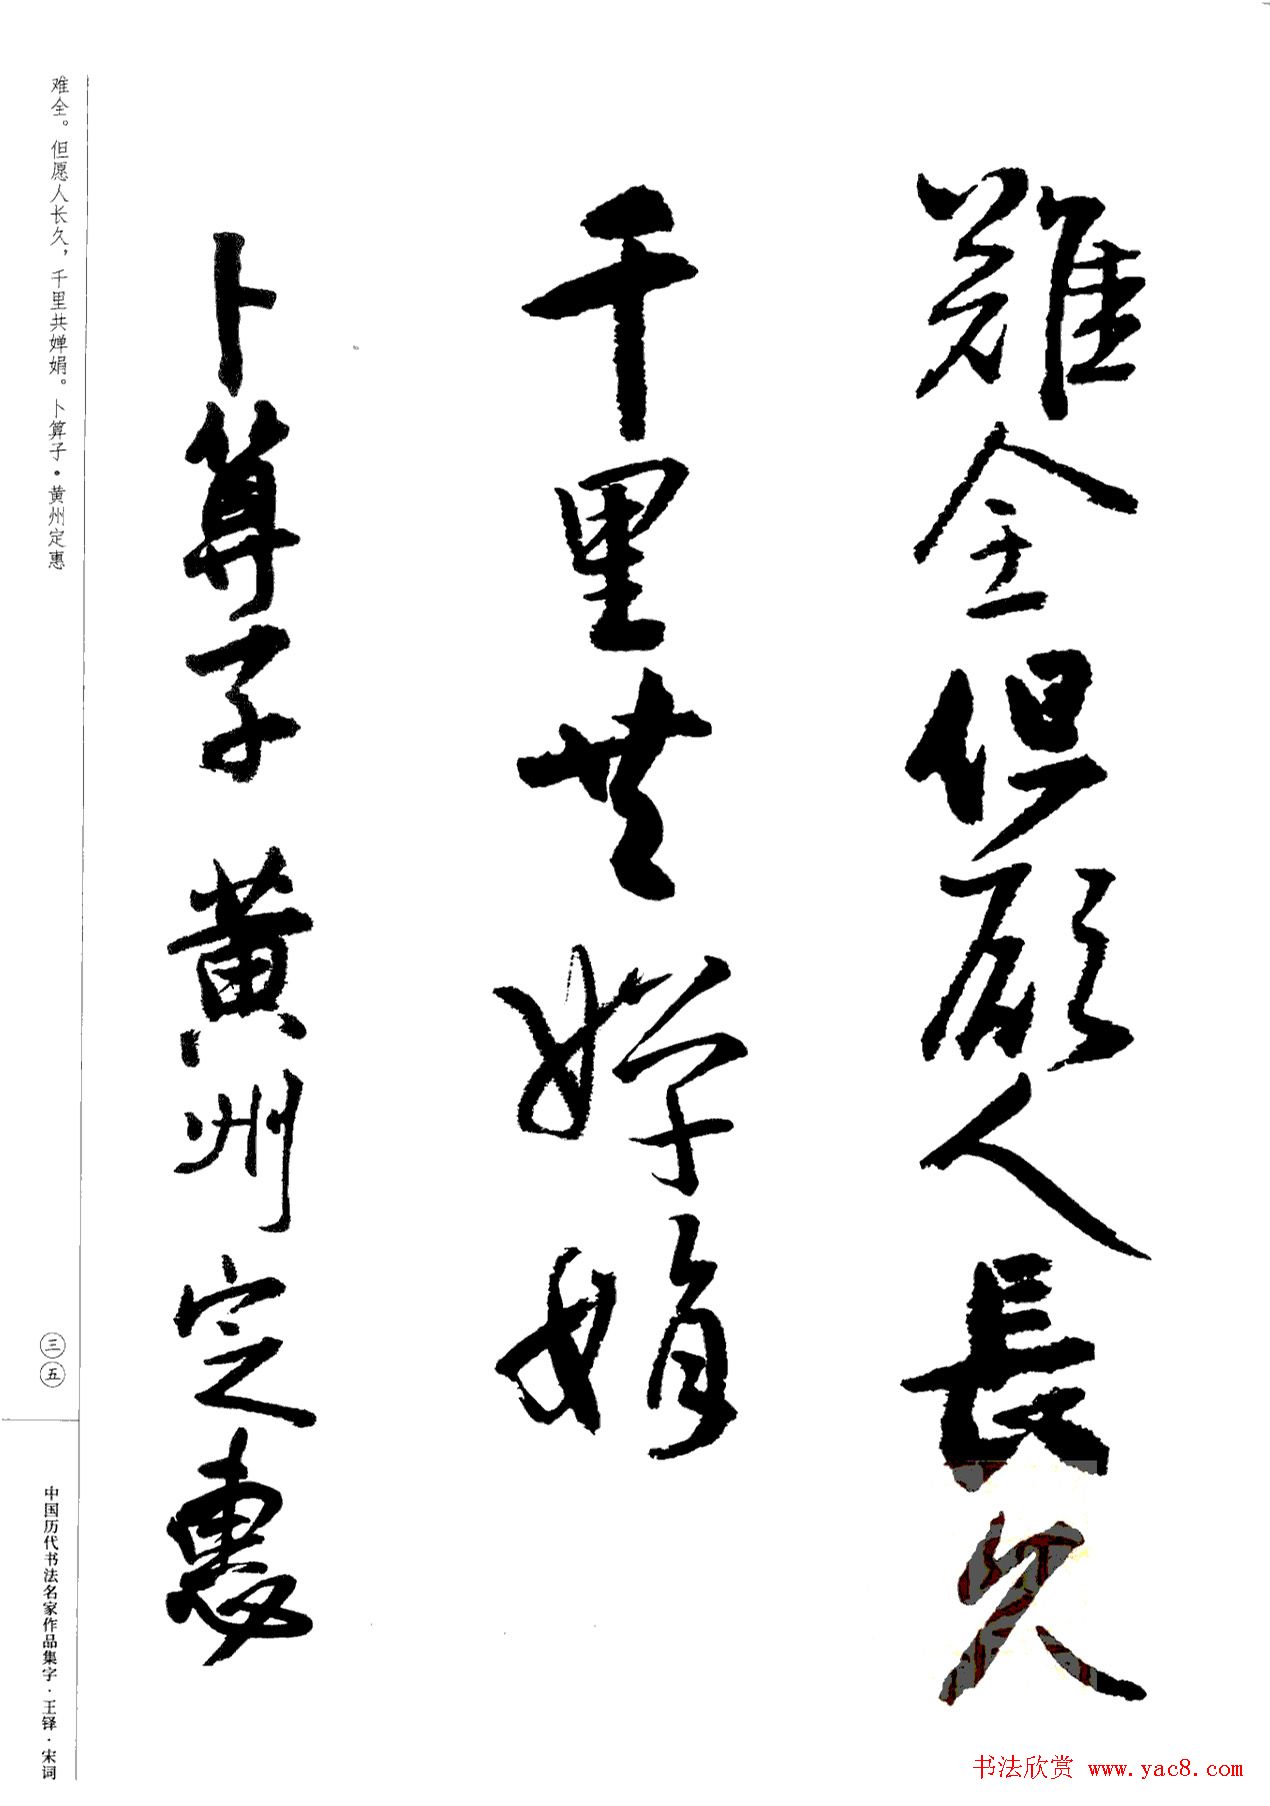 難全但願人長久
千里共嬋娟
卜算子黄州定惠
难全。但愿人长久，千里共婵娟。卜算子·黄州定惠
三五
中国历代书法名家作品集字·王铎·宋词
书法欣赏 www.yac8.com